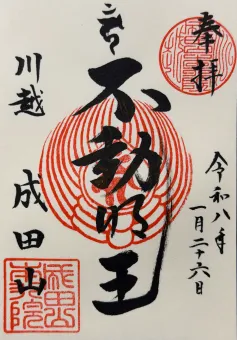 奉拝
不動明王
川越
成田山
令和八年
一月二十六日
成田山